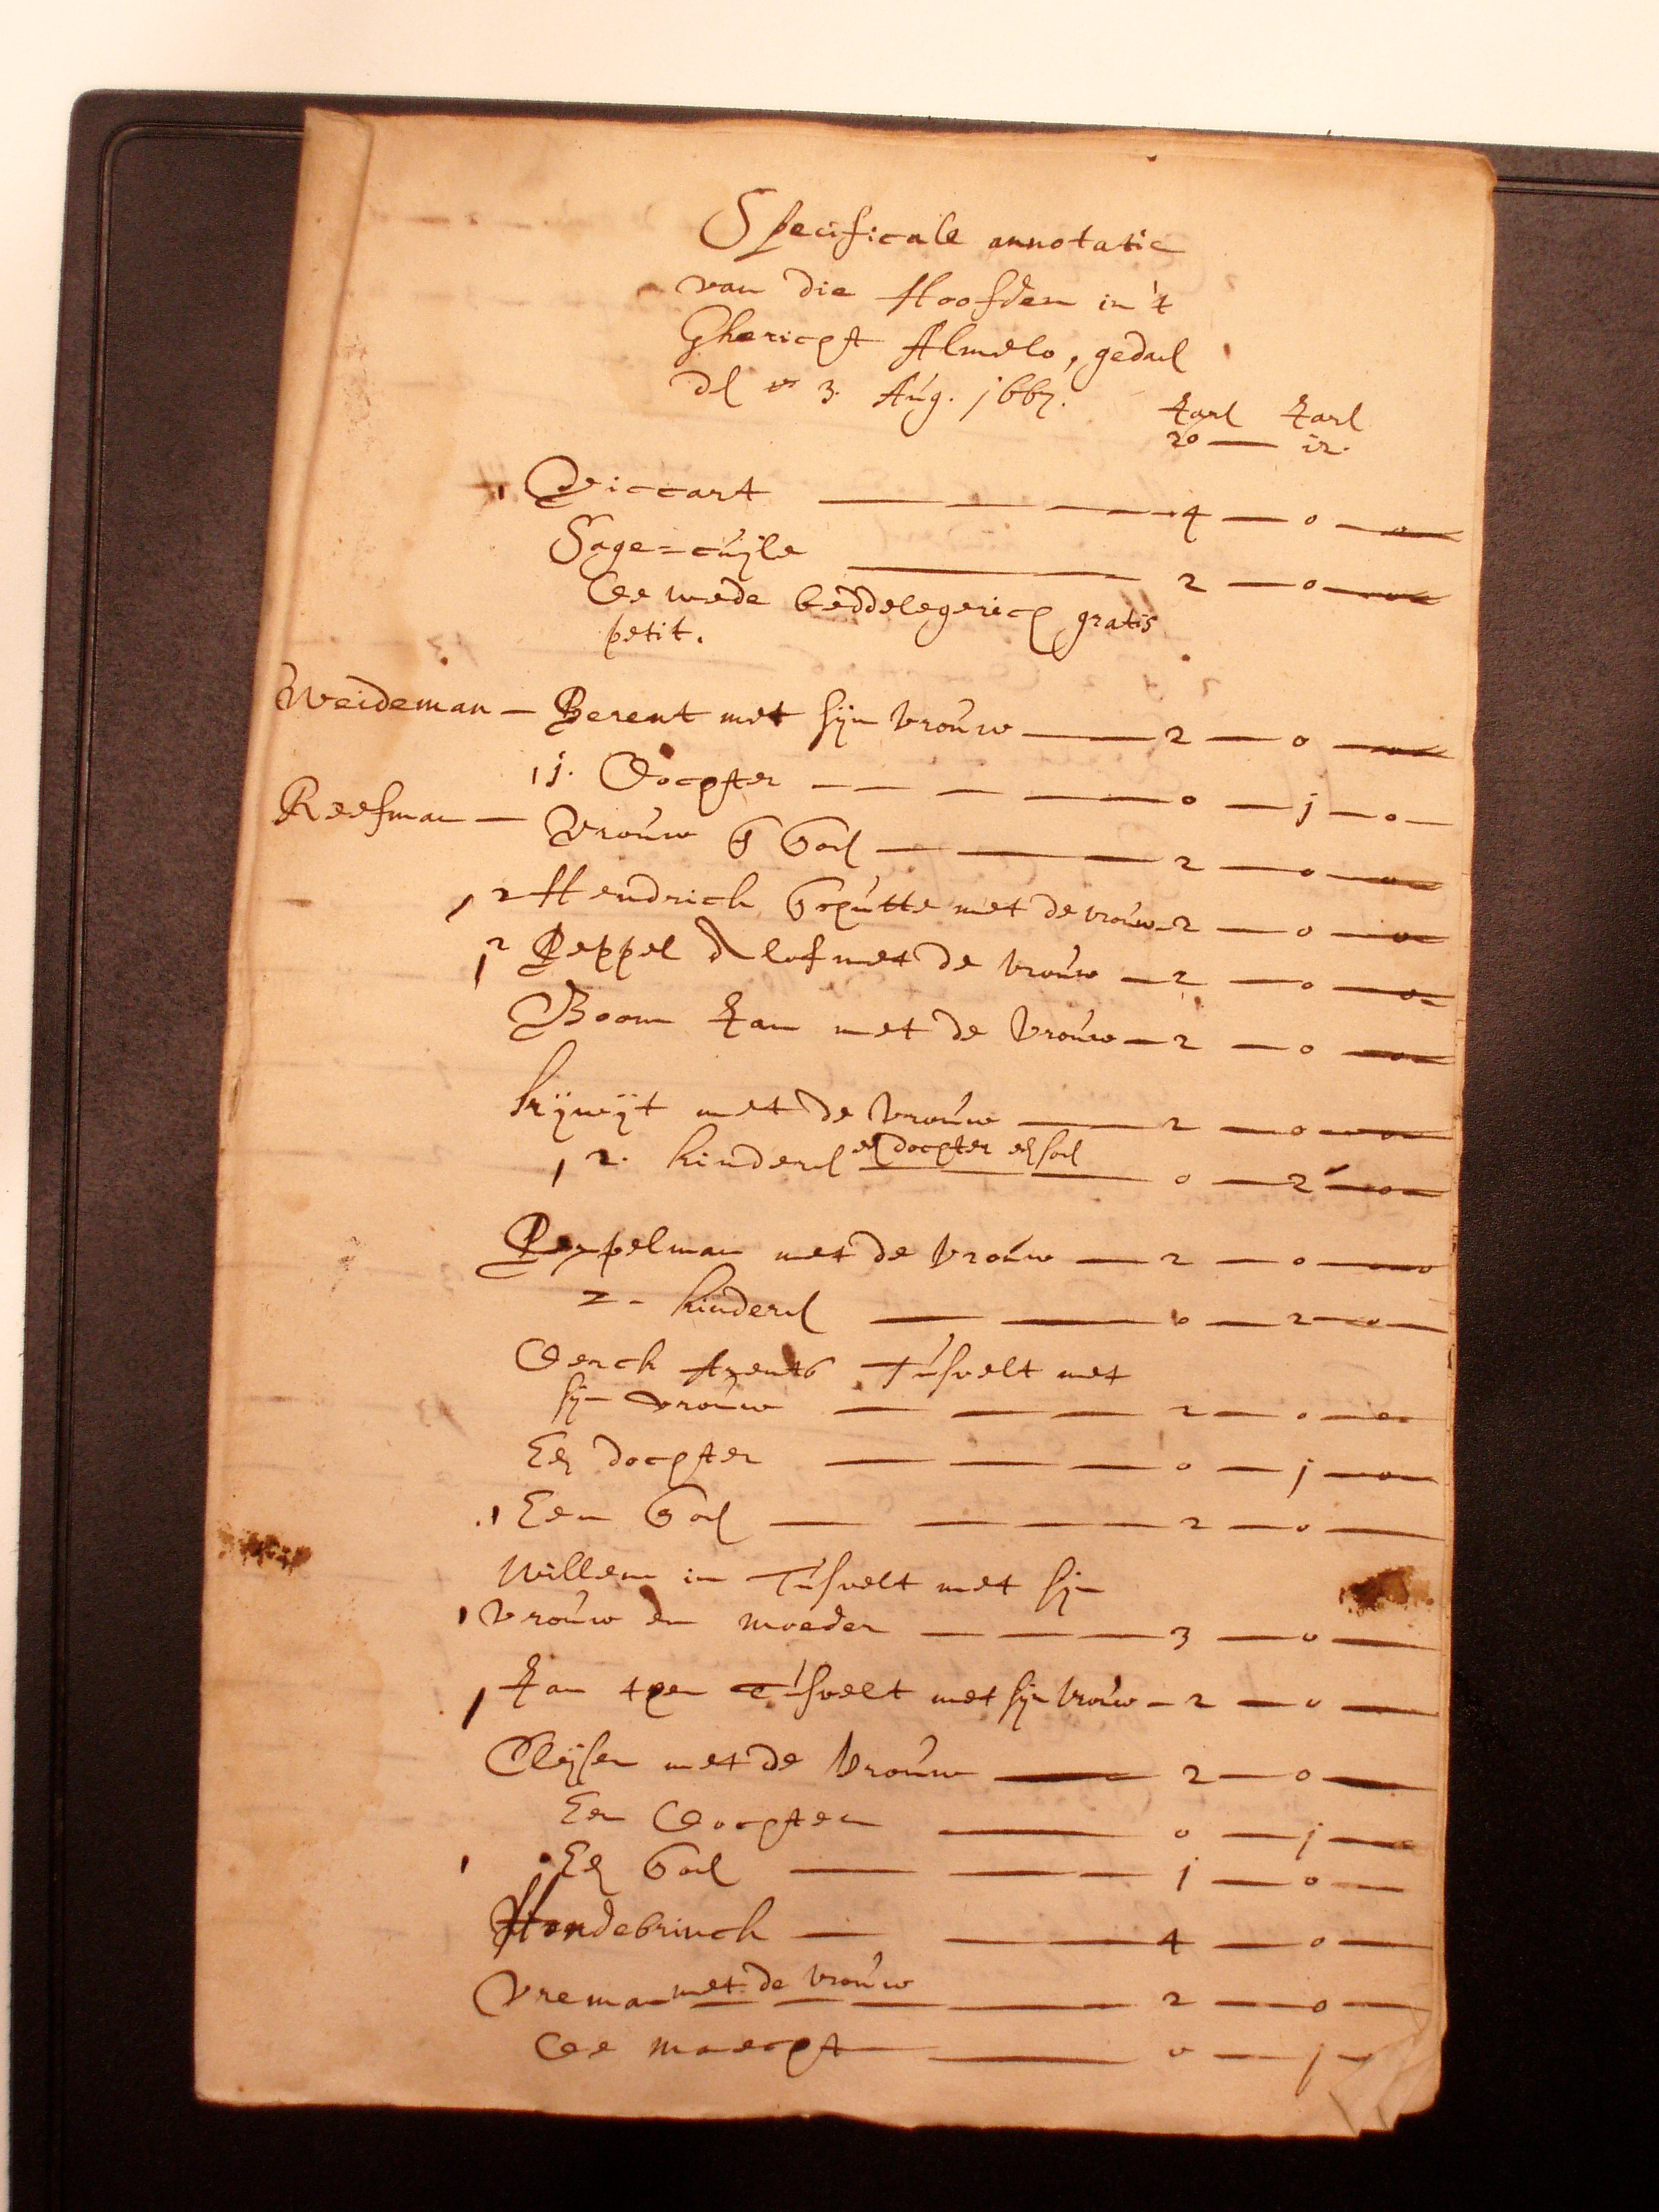 Specificale annotatie
van die Hoofden in 't
Ghericht Almelo, gedaen
den 3. Aug. 1667.
20 — 12.
1 Riccart — 4 — 0 — 0
Sage=cuÿle — 2 — 0 — 0
De mede beddelegerich gratis
petit.
Weideman — Berent met sijn vrouw — 2 — 0 — 0
1 j. Dochter — 0 — j — 0 —
Reefman — Vrouw Soen — 2 — 0 — 0
1 2 Hendrich Schutte met de vrouw 2 — 0 — 0
1 2 Peppel Roelof met de vrouw — 2 — 0 — 0
Boom Jan met de vrouw — 2 — 0 — 0
met de vrouw — 2 — 0 — 0
1 2. kinderen een dochter een soen — 0 — 2 — 0
Peppelman met de vrouw — 2 — 0 — 0
2 - kinderen — 0 — 2 — 0
Derch Arents Tusvelt met
sijn vrouw — 2 — 0 — 0
Een dochter — 0 — j — 0
1 Een Soen — 2 — 0 —
Willem in Tusvelt met sijn
1 vrouw en moeder — 3 — 0 —
1 Jan then Tusvelt met sijn vrouw — 2 — 0 —
Cleÿsen met de vrouw — 2 — 0 —
Een Dochter — 0 — j —
1 Een Soen — 1 — 0 —
Hondebrinck — 4 — 0 —
Vreman met de vrouw — 2 — 0 —
De maecht — 0 — j —